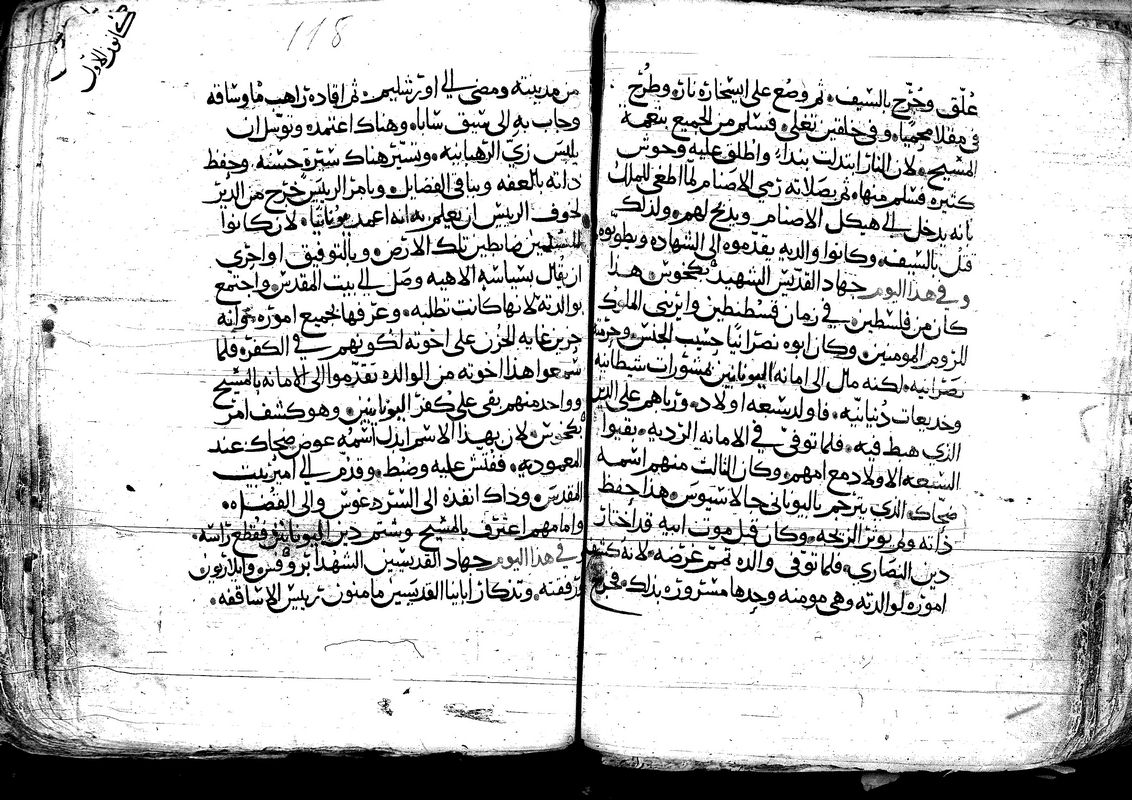 عُلّق وجُرّح بالسيف، ثم وضع على اسخاره نار، وطُرح
في مقلا محميّا، وفي خلقين تغلي، فسلم من الجميع بنعمة
المسيح، لان النار ابتدلت بندا، واطلق عليه وحوش
كثيره فسلم منها، ثم بصلاته رمي الاصنام لما اطغى للملك
بانه يدخل الى هيكل الاصنام ويدبح لهم، ولذلك
قتل بالسيف، وكانوا والديه يقدموه الى الشهاده ويطوبوه
وفي هذا اليوم جهاد القديس الشهيد بكخوس، هذا
كان من فلسطين، في زمان قسطنطين وايريني الملوك
للروم المومنين، وكان ابوه نصرانيا حسيب الجنس، وحرمته
نصرانيه، لكنه مال الى امانة اليونانيين بمشورات شيطانيه
وخديعات دُنيانيه، فاولد سبعه اولاد، ورباهم على الدين
الذي هبط فيه، فلما توفى في الامانه الرديه، بقيوا
السبعه الاولاد مع امهم، وكان الثالت منهم اسمه
ضحاك، الذي يترجم باليوناني جالاسيوس، هذا حفظ
ذاته ولم يوثر الزيجه، وكان قبل موت ابيه قد اختار
دين النصارى، فلما توفى والده تمم غرضه، لانه كشف
اموره لوالدته وهي مومنه وجدها مسروره بذلك، فخرج
118
كانون الاول
من مدينته ومضى الى اورشليم، ثم اقاده راهب ما وساقه
وجاب به الى سيق سابا، وهناك اعتمد، وتوسل ان
يلبس زيّ الرهبانيه، وتسيّر هناك سيرة حسنه، وحفظ
ذاته بالعفه وبباقي الفضائل، وبامر الريس خرج من الدير
لخوف الريس ان يعلم به انه اعمد يونانيا، لان كانوا
المسلمين ضابطين تلك الارض، وبالتوفيق او احرى
ان يقال بسياسه الاهيه وصل الى بيت المقدس، واجتمع
بوالدته لانها كانت تطلبه، وعرّفها بجميع اموره، وانه
حزين غاية الحُزن على اخوته لكونهم في الكفر، فلما
سمعوا هذا اخوته من الوالده تقدموا الى الامانه بالمسيح
وواحد منهم بقي على كفر اليونانيين، وهو كشف امر
بكخوس، لان بهذا الاسم ابدل اسمه عوض ضحاك عند
المعموديه، ففتش عليه وضُبط، وقدّم الى امير بيت
المقدس، وذاك انفده الى السردغوس والى القضاه،
وامامهم اعترف بالمسيح وشتم دين اليونانيين، فقُطع راسه،
وفي هذا اليوم جهاد القديسين الشهدا بروفس وايلاريون
رفقته، وتذكار ابانيا القديسين مامنون ريس الاساقفه،